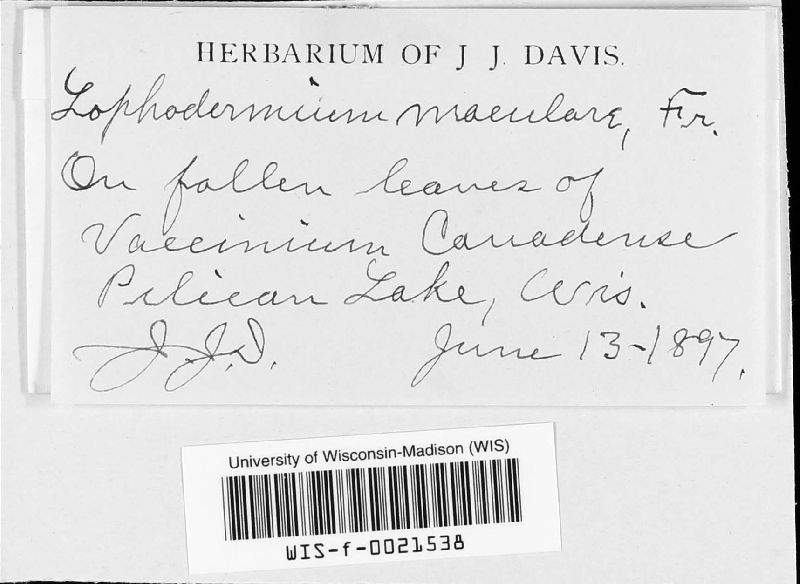 HERBARIUM OF J J. DAVIS.
Lophodermium maculare, Fr.
On fallen leaves of
Vaccinium Canadense
Pelican Lake, Wis.
J.J.D. June 13-1897.
University of Wisconsin-Madison (WIS)
WIS-f-0021538